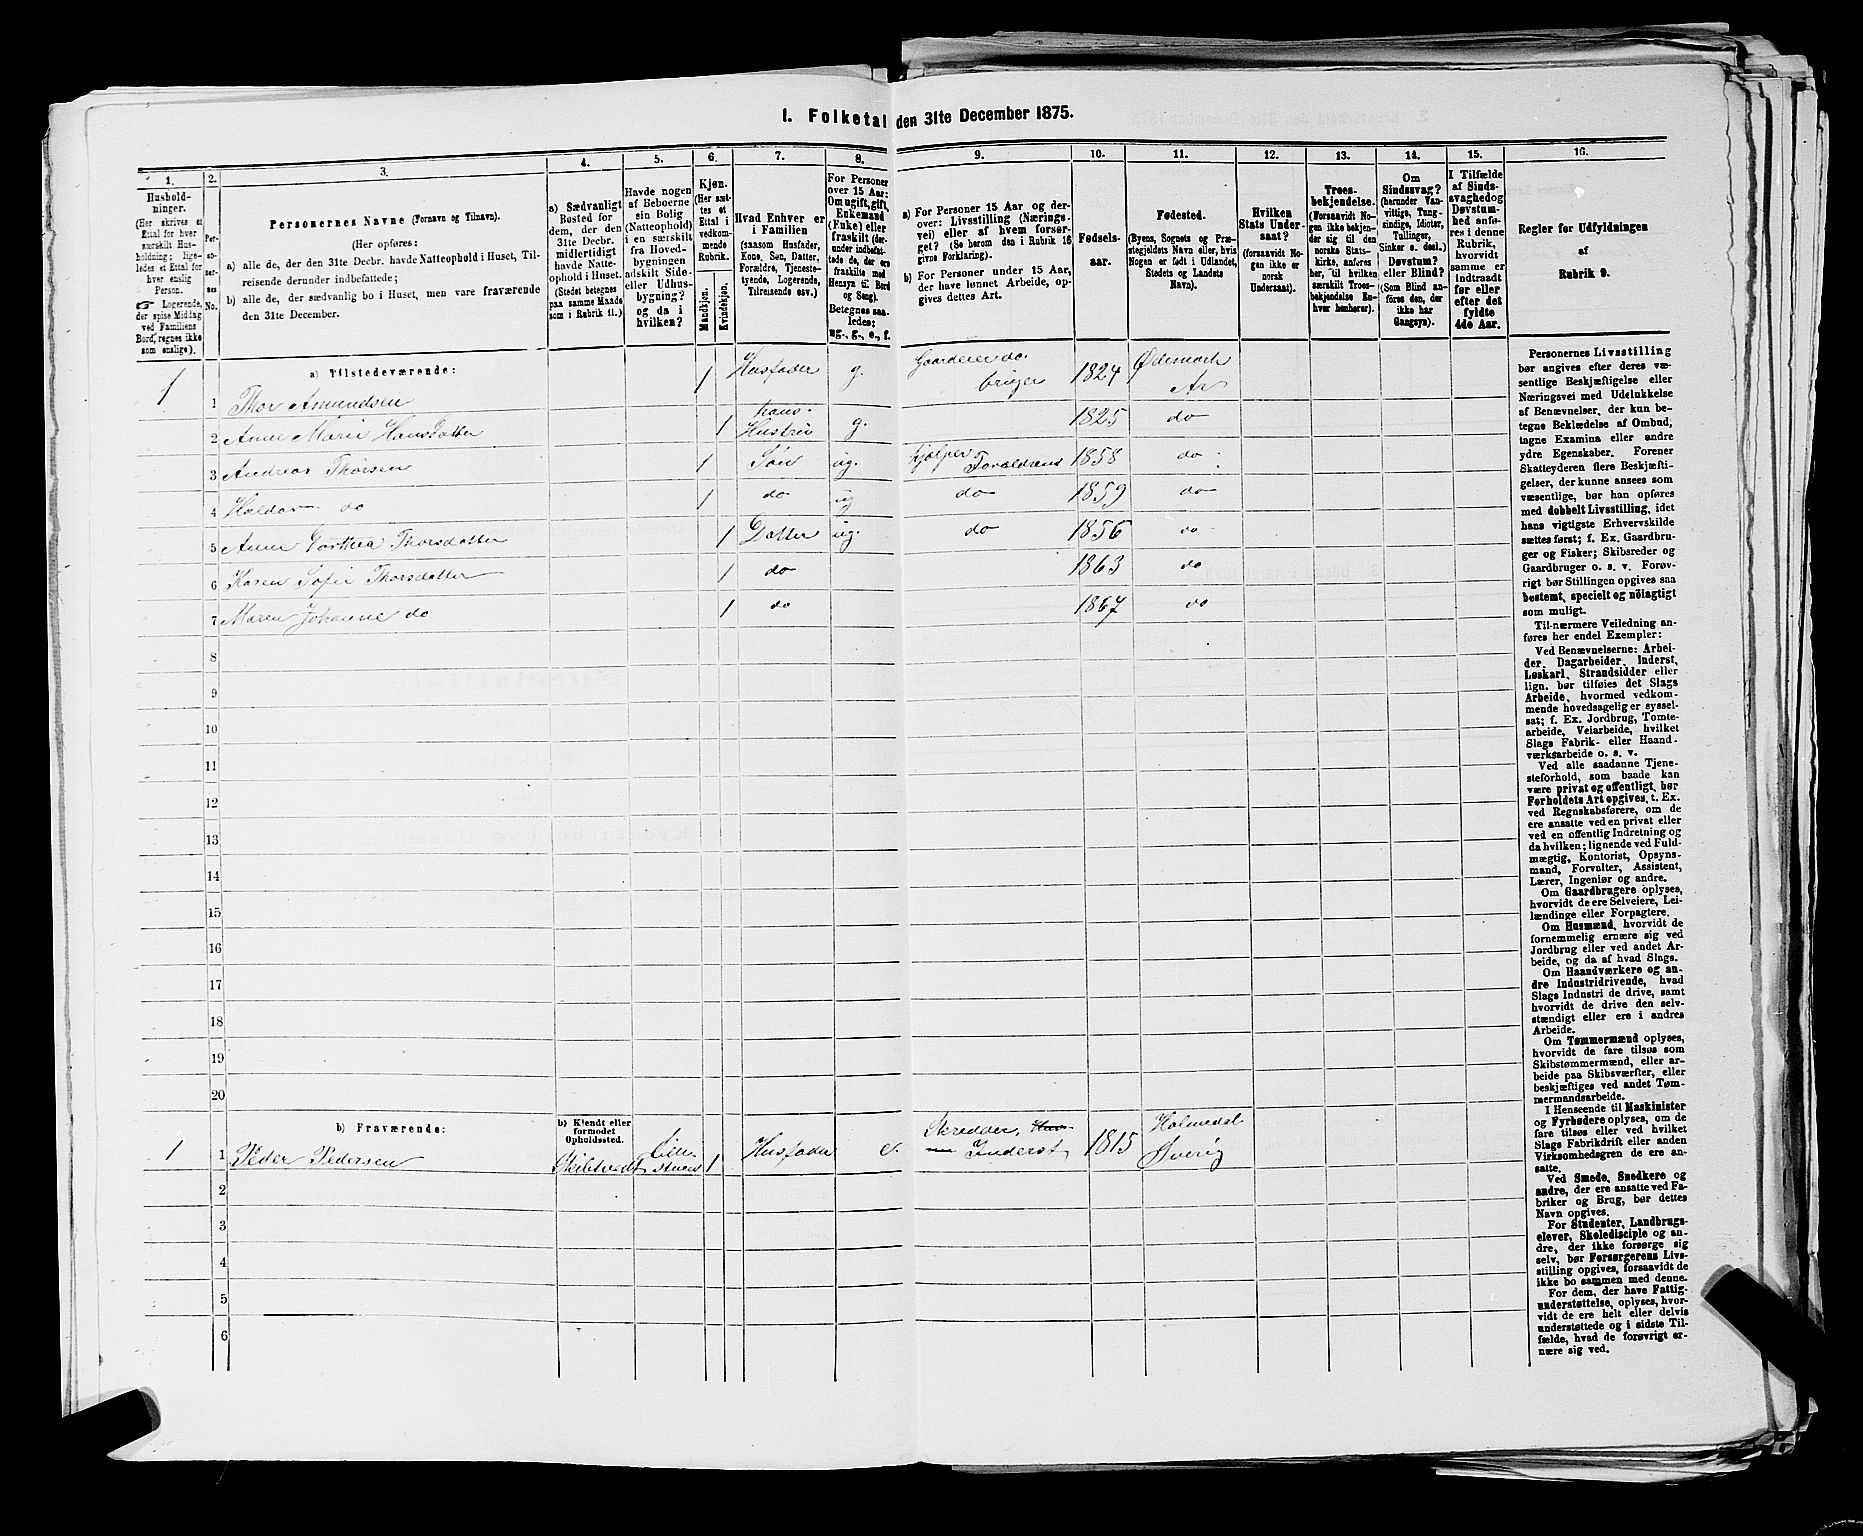 1. Folketal den 31te December 1875.
1. 2. 3. 4. 5. 6. 7. 8. 9. 10. 11. 12. 13. 14. 15. 16.
Hushold-
ninger.
(Her skrives et
Ettal for hver
særskilt Hus-
holdning; lige-
ledes et Ettal for
hver enslig
Person.
☞ Logerende,
der spise Middag
ved Familiens
Bord, regnes ikke
som enslige).
Per-
so-
ner-
nes
No.
Personernes Navne (Fornavn og Tilnavn).
(Her opføres:
a) alle de, der den 31te Decbr. havde Natteophold i Huset, Til-
reisende derunder indbefattede;
b) alle de, der sædvanlig bo i Huset, men vare fraværende
den 31te December.
a) Sædvanligt
Bosted for
dem, der den
31te Decbr.
midlertidigt
havde Natte-
ophold i Huset.
(Stedet betegnes
paa samme Maade
som i Rubrik 11.)
Havde nogen
af Beboerne
sin Bolig
(Natteophold)
i en særskilt
fra Hoved-
bygningen
adskilt Side-
eller Udhus-
bygning?
og da i
hvilken?
Kjøn.
(Her sæt-
tes et
Ettal i
vedkom-
mende
Rubrik.
Mandkjøn.
Kvindekjøn.
Hvad Enhver er
i Familien
(saasom Husfader,
Kone, Søn, Datter,
Forældre, Tjeneste-
tyende, Logerende,
Tilreisende osv.)
For Personer
over 15 Aar:
Om ugift, gift,
Enkemand
(Enke) eller
fraskilt (der-
under indbefat-
tede de, der ere
fraskilte med
Hensyn til Bord
og Seng).
Betegnes saa-
ledes:
ug., g., e., f.
a) For Personer 15 Aar og der-
over: Livsstilling (Nærings-
vei) eller af hvem forsør-
get? (Se herom den i Rubrik 16
givne Forklaring).
b) For Personer under 15 Aar,
der have lønnet Arbeide, op-
gives dettes Art.
Fødsels-
aar.
Fødested.
(Byens, Sognets og Præ-
stegjeldets Navn eller, hvis
Nogen er født i Udlandet,
Stedets og Landets
Navn).
Hvilken
Stats Under-
saat?
(forsaavidt No-
gen ikke er
norsk
Undersaat).
Troes-
bekjendelse.
(Forsaavidt No-
gen ikke bekjen-
der sig til den
norske Stats-
kirke, anføres
her, til hvilken
særskilt Troes-
bekjendelse En-
hver henhører).
Om
Sindssvag?
(herunder Van-
vittige, Tung-
sindige, Idioter,
Tullinger,
Sinker o. desl.)
Døvstum?
eller Blind?
(Som Blind an-
føres den, der
ikke har
Gangsyn).
I Tilfælde
af Sinds-
svaghed og
Døvstum-
hed anfø-
res i denne
Rubrik,
hvorvidt
samme er
indtraadt
før eller
efter det
fyldte
4de Aar.
Regler for Udfyldningen
af
Rubrik 9.
a) Tilstedeværende:
1 1 Thor Amundsen 1 Husfader g. Gaardeier do bruger 1824 Ødemark
2 Anne Marie Hansdatter 1 hans Hustru g. 1825 do
3 Andreas Thorsen 1 Søn ug. hjælper Forældrene 1858 do
4 Haldor do 1 do ug do 1859 do
5 Anne Dorthea Thorsdatter 1 Datter ug. do 1856 do
6 Karen Sofie Thorsdatter 1 do 1863 do
7 Maren Johanne do 1 do 1867 do
8
9
10
11
12
13
14
15
16
17
18
19
20
b) Fraværende:
b) Kjendt eller
formodet
Opholdssted.
1 1 Peder Pedersen 1 Husfader e. Skredder, Inderst 1815 Holmedal Sverig
2
3
4
5
6
Personernes Livsstilling
bør angives efter deres væ-
sentlige Beskjæftigelse eller
Næringsvei med Udelukkelse
af Benævnelser, der kun be-
tegne Beklædelse af Ombud,
tagne Examina eller andre
ydre Egenskaber. Forener
Skatteyderen flere Beskjæfti-
gelser, der kunne ansees som
væsentlige, bør han opføres
med dobbelt Livsstilling, idet
hans vigtigste Erhvervskilde
sættes først; f. Ex. Gaardbru-
ger og Fisker; Skibsreder og
Gaardbruger o. s. v. Forøv-
rigt bør Stillingen opgives saa
bestemt, specielt og nöiagtigt
som muligt.
Til nærmere Veiledning an-
føres her endel Exempler:
Ved Benævnelserne: Arbei-
der, Dagarbeider, Inderst,
Løskarl, Strandsidder eller
lign. bør tilføies det Slags
Arbeide, hvormed vedkom-
mende hovedsagelig er syssel-
sat; f. Ex. Jordbrug, Tomte-
arbeide, Veiarbeide, hvilket
Slags Fabrik- eller Haand-
værksarbeide o. s. v.
Ved alle saadanne Tjene-
steforhold, som baade kan
være privat og offentligt, bør
Forholdets Art opgives, t. Ex.
ved Regnskabsførere, om de
ere ansatte ved en privat eller
ved en offentlig Indretning og
da hvilken; lignende ved Fuld-
mægtig, Kontorist, Opsyns-
mand, Forvalter, Assistent,
Lærer, Ingeniør og andre.
Om Gaardbrugere oplyses,
hvorvidt de ere Selveiere, Lei-
lændinge eller Forpagtere.
Om Husmænd, hvorvidt de
fornemmelig ernære sig ved
Jordbrug eller ved andet Ar-
beide, og da af hvad Slags.
Om Haandværkere og an-
dre Industridrivende, hvad
Slags Industri de drive, samt
hvorvidt de drive den selv-
stændigt eller ere i andres
Arbeide.
Om Tømmermænd oplyses,
hvorvidt de fare tilsøs som
Skibstømmermænd, eller ar-
beide paa Skibsværfter, eller
beskjæftiges ved andet Tøm-
mermandsarbeide.
I Henseende til Maskinister
og Fyrbødere oplyses, om de
fare tilsøs eller ved hvilket
Slags Fabrikdrift eller anden
Virksomhedsgren de ere an-
satte.
Ved Smede, Snedkere og
andre, der ere ansatte ved Fa-
briker og Brug, bør dettes
Navn opgives.
For Studenter, Landbrugs-
elever, Skoledisciple og an-
dre, der ikke forsørge sig
selv, bør Forsørgerens Livs-
stilling opgives, forsaavidt de
ikke bo sammen med denne.
For dem, der have Fattig-
understøttelse, oplyses, hvor-
vidt de ere helt eller delvis
understøttede og i sidste Til-
fælde, hvad de forøvrigt er-
nære sig ved.